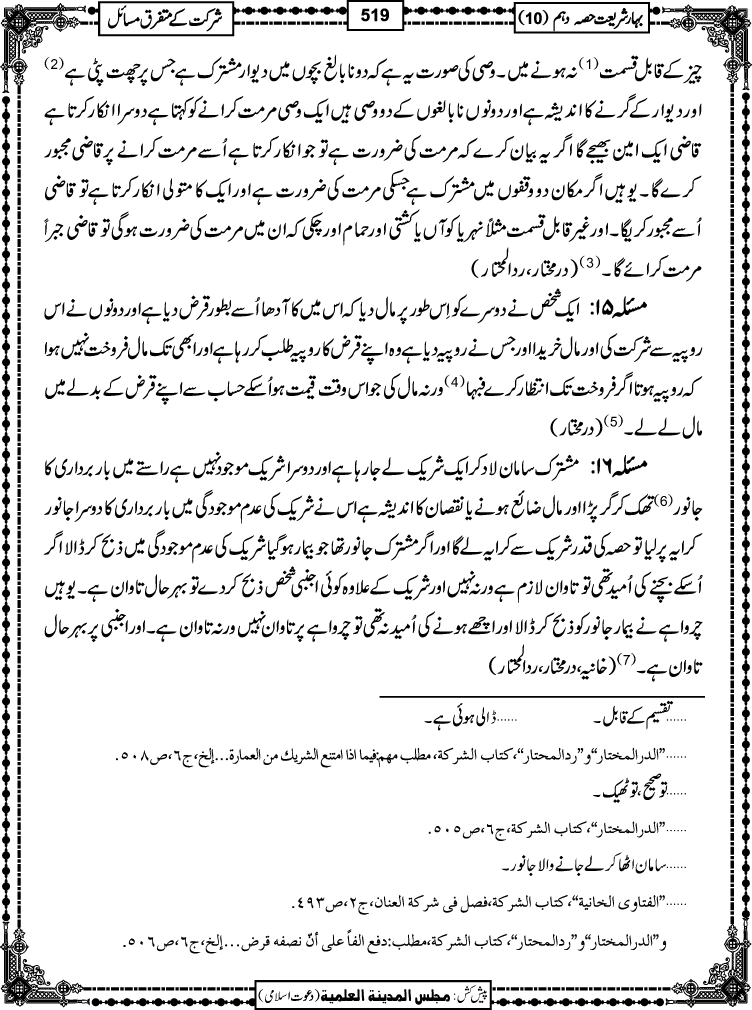 بہارِ شریعت حصہ دہم (10)
519
شرکت کے متفرق مسائل
چیز کے قابل قسمت(1) نہ ہونے میں۔ وصی کی صورت یہ ہے کہ دو نابالغ بچوں میں دیوار مشترک ہے جس پر چھت پٹی ہے(2)
اور دیوار کے گرنے کا اندیشہ ہے اور دونوں نابالغوں کے دو وصی ہیں ایک وصی مرمت کرانے کو کہتا ہے دوسرا انکار کرتا ہے
قاضی ایک امین بھیجے گا اگر یہ بیان کرے کہ مرمت کی ضرورت ہے تو جو انکار کرتا ہے اُسے مرمت کرانے پر قاضی مجبور
کرے گا۔ یوہیں اگر مکان دو وقفوں میں مشترک ہے جسکی مرمت کی ضرورت ہے اور ایک کا متولی انکار کرتا ہے تو قاضی
اُسے مجبور کریگا۔ اور غیر قابل قسمت مثلاً نہر یا کوآں یا کشتی اور حمام اور چکی کہ ان میں مرمت کی ضرورت ہوگی تو قاضی جبراً
مرمت کرائے گا۔(3) (درمختار، ردالمحتار)
مسئلہ ۱۵: ایک شخص نے دوسرے کو اِس طور پر مال دیا کہ اس میں کا آدھا اُسے بطور قرض دیا ہے اور دونوں نے اس
روپیہ سے شرکت کی اور مال خریدا اور جس نے روپیہ دیا ہے وہ اپنے قرض کا روپیہ طلب کر رہا ہے اور ابھی تک مال فروخت نہیں ہوا
کہ روپیہ ہوتا اگر فروخت تک انتظار کرے فبہا(4) ورنہ مال کی جو اس وقت قیمت ہو اُسکے حساب سے اپنے قرض کے بدلے میں
مال لے لے۔(5) (درمختار)
مسئلہ ۱۶: مشترک سامان لاد کر ایک شریک لے جا رہا ہے اور دوسرا شریک موجود نہیں ہے راستے میں بار برداری کا
جانور(6) تھک کر گر پڑا اور مال ضائع ہونے یا نقصان کا اندیشہ ہے اس نے شریک کی عدم موجودگی میں بار برداری کا دوسرا جانور
کرایہ پر لیا تو حصہ کی قدر شریک سے کرایہ لے گا اور اگر مشترک جانور تھا جو بیمار ہوگیا شریک کی عدم موجودگی میں ذبح کر ڈالا اگر
اُسکے بچنے کی اُمید تھی تو تاوان لازم ہے ورنہ نہیں اور شریک کے علاوہ کوئی اجنبی شخص ذبح کر دے تو بہر حال تاوان ہے۔ یوہیں
چرواہے نے بیمار جانور کو ذبح کر ڈالا اور اچھے ہونے کی اُمید نہ تھی تو چرواہے پر تاوان نہیں ورنہ تاوان ہے۔ اور اجنبی پر بہر حال
تاوان ہے۔(7) (خانیہ، درمختار، ردالمحتار)
......تقسیم کے قابل۔ ......ڈالی ہوئی ہے۔
......”الدرالمختار“ و ”ردالمحتار“، کتاب الشرکة، مطلب مهم: فیما اذا امتنع الشریك من العمارة...إلخ، ج٦، ص٥٠٨.
......تو صحیح، تو ٹھیک۔
......”الدرالمختار“، کتاب الشرکة، ج٦، ص٥٠٥.
......سامان اٹھا کر لے جانے والا جانور۔
......”الفتاوی الخانیة“، کتاب الشرکة، فصل فی شرکة العنان، ج٢، ص٤٩٣.
و ”الدرالمختار“ و ”ردالمحتار“، کتاب الشرکة، مطلب: دفع الفاً علی أنّ نصفه قرض...إلخ، ج٦، ص٥٠٦.
پیش کش: مجلس المدینة العلمیة (دعوتِ اسلامی)